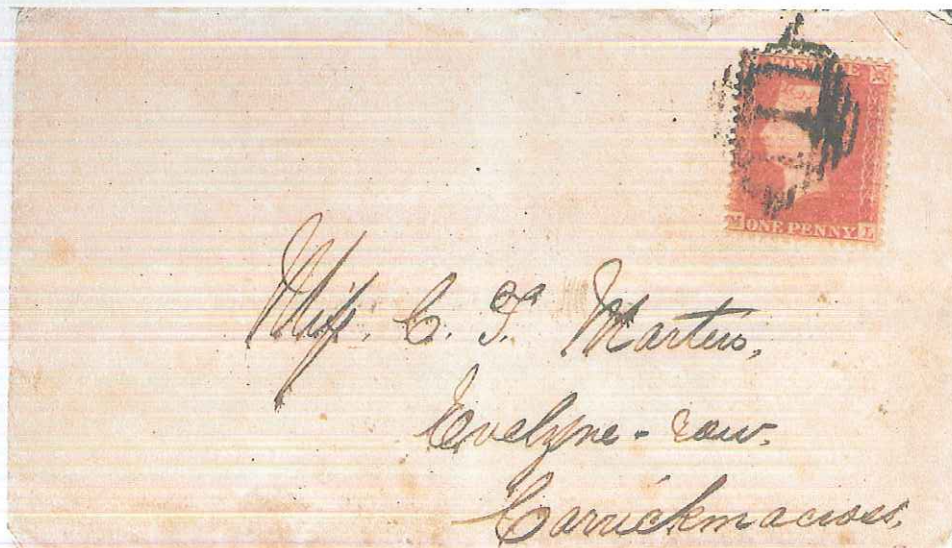 POSTAGE
M ONE PENNY L
Miss. C. F. Martin,
Evelyne - row.
Carrickmacross,